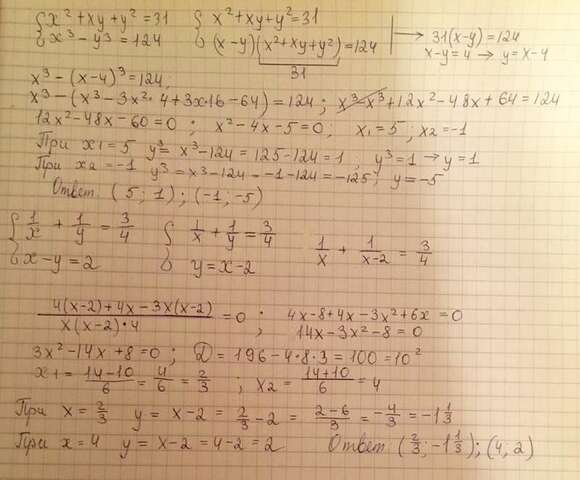 { x² + xy + y² = 31   { x² + xy + y² = 31
{ x³ - y³ = 124   { (x-y)(x² + xy + y²) = 124   | → 31(x-y) = 124
31   x-y = 4 → y = x-4
x³ - (x-4)³ = 124;
x³ - (x³ - 3x²·4 + 3x·16 - 64) = 124; x³ - x³ + 12x² - 48x + 64 = 124
12x² - 48x - 60 = 0; x² - 4x - 5 = 0; x₁ = 5; x₂ = -1
При x₁ = 5 y³ = x³ - 124 = 125 - 124 = 1; y³ = 1 → y = 1
При x₂ = -1 y³ = x³ - 124 = -1 - 124 = -125; y = -5
Ответ (5; 1); (-1; -5)
{ 1/x + 1/y = 3/4   { 1/x + 1/y = 3/4   1/x + 1/(x-2) = 3/4
{ x - y = 2   { y = x-2
(4(x-2) + 4x - 3x(x-2))/(x(x-2)·4) = 0;   4x - 8 + 4x - 3x² + 6x = 0
14x - 3x² - 8 = 0
3x² - 14x + 8 = 0; D = 196 - 4·8·3 = 100 = 10²
x₁ = (14-10)/6 = 4/6 = 2/3; x₂ = (14+10)/6 = 4
При x = 2/3 y = x-2 = 2/3 - 2 = (2-6)/3 = -4/3 = -1 1/3
При x = 4 y = x-2 = 4-2 = 2   Ответ (2/3; -1 1/3); (4; 2)